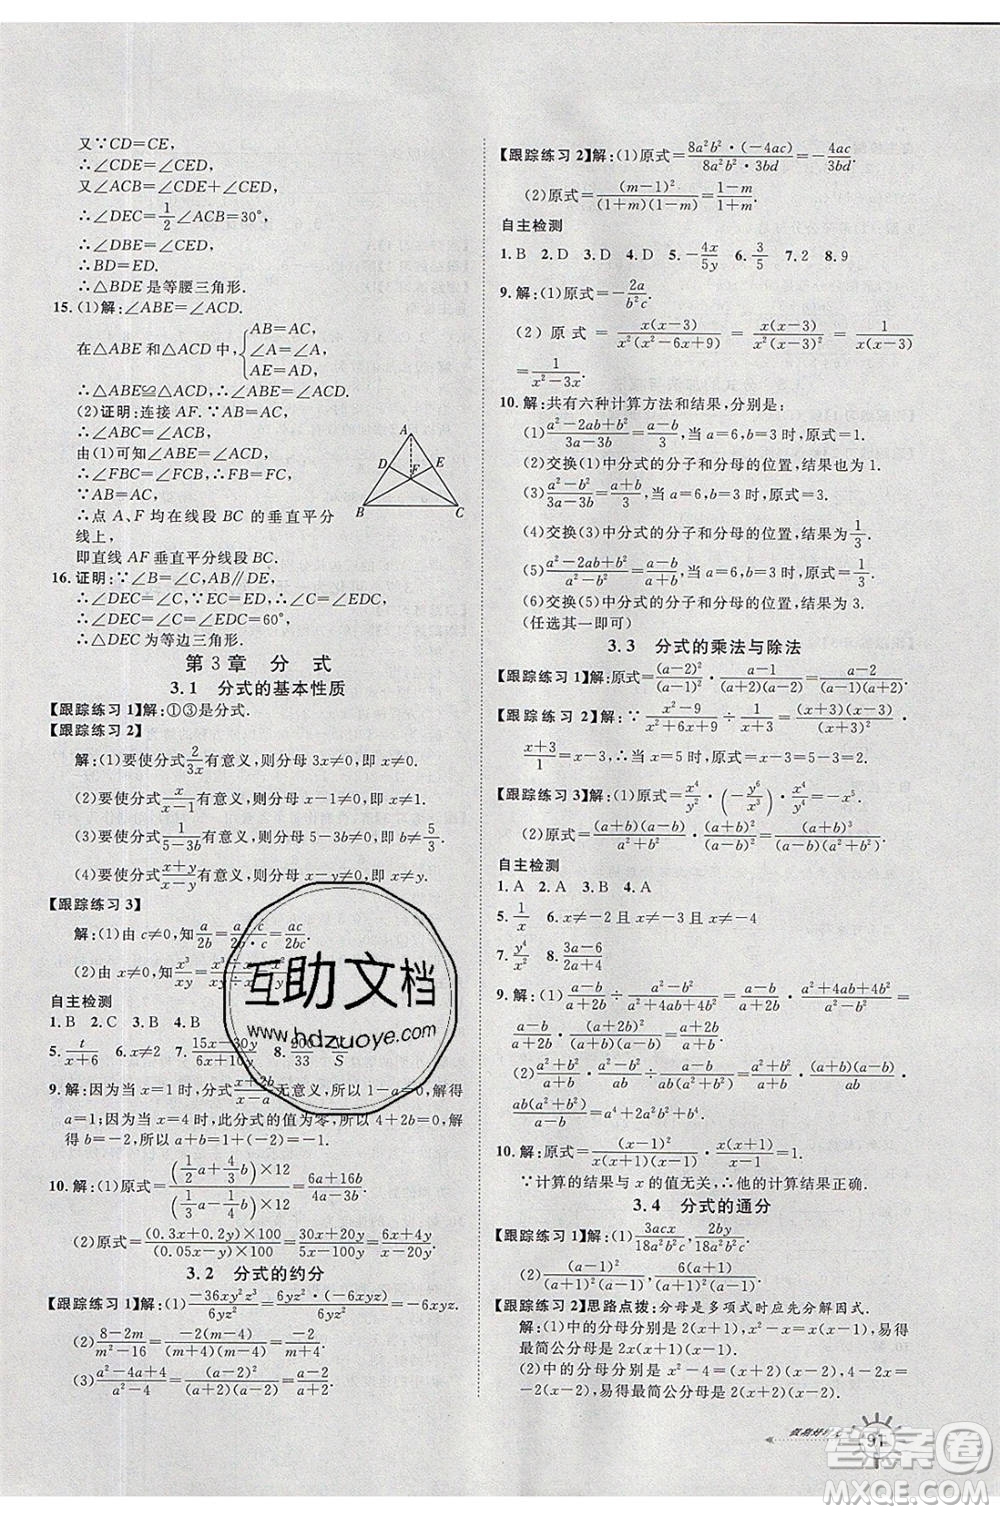 又∵CD=CE,
∴∠CDE=∠CED,
又∠ACB=∠CDE+∠CED,
∴∠DEC=1/2∠ACB=30°,
∴∠DBE=∠CED,
∴BD=ED,
∴△BDE是等腰三角形.
15.(1)解:∠ABE=∠ACD.
在△ABE和△ACD中,{AB=AC, ∠A=∠A, AE=AD,
∴△ABE≌△ACD,
∴∠ABE=∠ACD.
(2)证明:连接 AF.∵AB=AC,
∴∠ABC=∠ACB,
由(1)可知∠ABE=∠ACD,
∴∠FBC=∠FCB,∴FB=FC.
∵AB=AC,
∴点 A、F 均在线段 BC 的垂直平分线上,
即直线 AF 垂直平分线段 BC.
A
D
E
F
B
C
16.证明:∵∠B=∠C,AB∥DE,
∴∠DEC=∠B,∴∠C=∠DEC.
∵∠EDC=∠C,∴∠C=∠EDC=60°,
∴△DEC 为等边三角形.
第 3 章 分 式
3.1 分式的基本性质
【跟踪练习 1】解:①③是分式.
【跟踪练习 2】
解:(1)要使分式2/(3x)有意义,则分母 3x≠0,即 x≠0.
(2)要使分式x/(x-1)有意义,则分母 x-1≠0,即 x≠1.
(3)要使分式1/(5-3b)有意义,则分母 5-3b≠0,即 b≠5/3.
(4)要使分式(x+y)/(x-y)有意义,则分母 x-y≠0,即 x≠y.
【跟踪练习 3】
解:(1)由 c≠0,知a/(2b)=(a·c)/(2b·c)=ac/(2bc).
(2)由 x≠0,知x³/(xy)=
自主检测
1.B 2.C 3.B 4.B
5.t/(x+6) 6.x≠2 7.(15x-30y)/(10x+6y) 8.200/33
9.解:因为当 x=1 时,分式(x+2b)/(x-a)无意义,所以 1-a=0,解得
a=1;因为当 x=4 时,此分式的值为零,所以 4+2b=0,解
得 b=-2,所以 a+b=1+(-2)=-1.
10.解:(1)原式=((1/2)a+(4/3)b)×12/((1/4)a-(2/3)b)×12=(6a+16b)/(3a-8b).
(2)原式=(0.3x+0.2y)×100/(0.05x-y)×100=(30x+20y)/(5x-100y)=(6x+4y)/(x-20y).
3.2 分式的约分
【跟踪练习 1】解:(1)(-36xy²z³)/(6yz²)=-(6yz²·6xyz)/(6yz²)=-6xyz.
(2)(8-2m)/(m²-16)=-2(m-4)/((m+4)(m-4))=-2/(m+4).
(3)(a²-4a+4)/(a²-4)=(a-2)²/((a+2)(a-2))=(a-2)/(a+2).
【跟踪练习 2】解:(1)原式=(8a²b²·(-4ac))/(8a²b²·3bd)=-4ac/(3bd).
(2)原式=(m-1)²/((1+m)(1-m))=(1-m)/(1+m).
自主检测
1.B 2.D 3.D 4.C 5.-4x/(5y) 6.3/5 7.2 8.9
9.解:(1)原式=-2a/(b²c).
(2)原式=x(x-3)/(x²(x²-6x+9))=x(x-3)/(x²(x-3)²)=1/(x(x-3))=
1/(x²-3x).
10.解:共有六种计算方法和结果,分别是:
(1)(a²-2ab+b²)/(3a-3b)=(a-b)/3,当 a=6,b=3 时,原式=1.
(2)交换(1)中分式的分子和分母的位置,结果也为 1.
(3)(a²-b²)/(3a-3b)=(a+b)/3,当 a=6,b=3 时,原式=3.
(4)交换(3)中分式的分子和分母的位置,结果为1/3.
(5)(a²-2ab+b²)/(a²-b²)=(a-b)/(a+b),当 a=6,b=3 时,原式=1/3.
(6)交换(5)中分式的分子和分母的位置,结果为 3.
(任选其一即可)
3.3 分式的乘法与除法
【跟踪练习 1】解:原式=(a-2)²/(a-1)²·(a-1)/((a+2)(a-2))=(a-2)/((a-1)(a+2)).
【跟踪练习 2】解:∵(x²-9)/(x²+6x+9)÷(x-3)/(x²+3x)=(x+3)(x-3)/(x+3)²·
(x+3)/1=x,∴当 x=5 时,原式=x=5.
【跟踪练习 3】解:(1)原式=x⁴/y²·(-y⁶/x³)·x⁴/y⁴=-x⁵.
(2)原式=(a+b)(a-b)/(a²+b²)·(a²+b²)/((a+b)(a-b))=1.
自主检测
1.A 2.A 3.B 4.A
5.1/x 6.x≠-2 且 x≠-3 且 x≠-4
7.y⁴/x² 8.(3a-6)/(2a+4)
9.解:(1)(a-b)/(a+2b)÷(a²-b²)/(a²+4ab+4b²)=(a-b)/(a+2b)·(a²+4ab+4b²)/(a²-b²)=
(a-b)/(a+2b)·(a+2b)²/((a+b)(a-b))=(a+2b)/(a+b).
ab(a²+b²)/(a-b).
10.解:原式=(x-1)²/((x+1)(x-1))·x(x+1)/(x-1)·1/x=1.
∵计算的结果与 x 的值无关,∴他的计算结果正确.
3.4 分式的通分
【跟踪练习 1】解:(1)3acx/(18a²b²c),2by/(18a²b²c).
【跟踪练习 2】思路点拨:分母是多项式时应先分解因式.
解:(1)中的分母分别是 2(x+1),x(x+1),易得
最简公分母是 2x(x+1).
(2)中的分母分别是 x²-4=(x+2)(x-2),4-2x=
-2(x-2),易得最简公分母是 2(x+2)(x-2).
互助文档
www.hdzuoye.com
91
答案卷
MXQE.COM